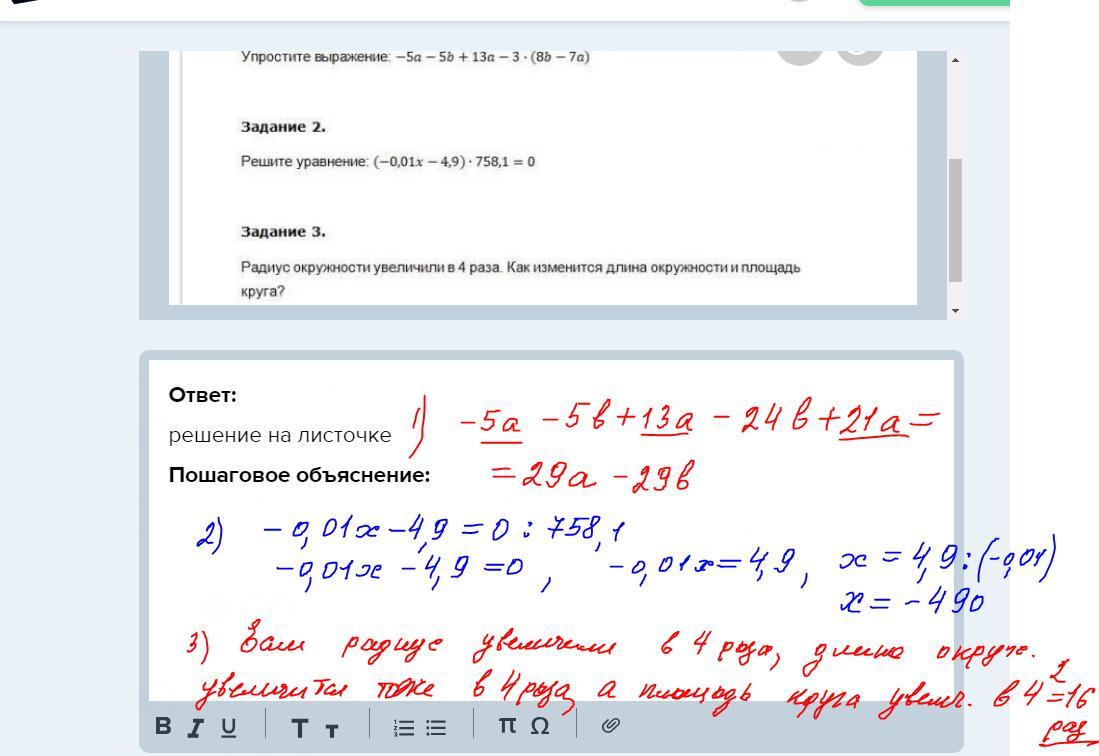 Упростите выражение: −5a − 5b + 13a − 3 · (8b − 7a)
Задание 2.
Решите уравнение: (−0,01x − 4,9) · 758,1 = 0
Задание 3.
Радиус окружности увеличили в 4 раза. Как изменится длина окружности и площадь
круга?
Ответ:
решение на листочке
1) −5a − 5b + 13a − 24b + 21a =
Пошаговое объяснение:
= 29a − 29b
2) − 0,01x − 4,9 = 0 : 758,1
−0,01x − 4,9 = 0, −0,01x = 4,9, x = 4,9 : (−0,01)
x = −490
3) Если радиус увеличили в 4 раза, длина окружн.
увеличится тоже в 4 раза, а площадь круга увелич. в 4² = 16
раз
B I U T т π Ω